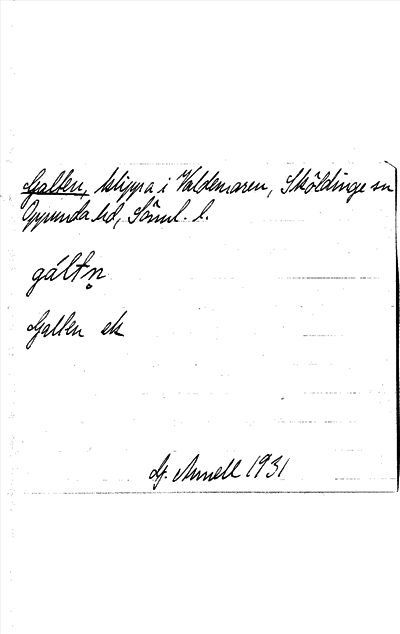 Galten, klippa i Valdemaren, Sköldinge sn
Oppunda hd, Söml. l.
gáltn̥
Galten ek
G. Annell 1931